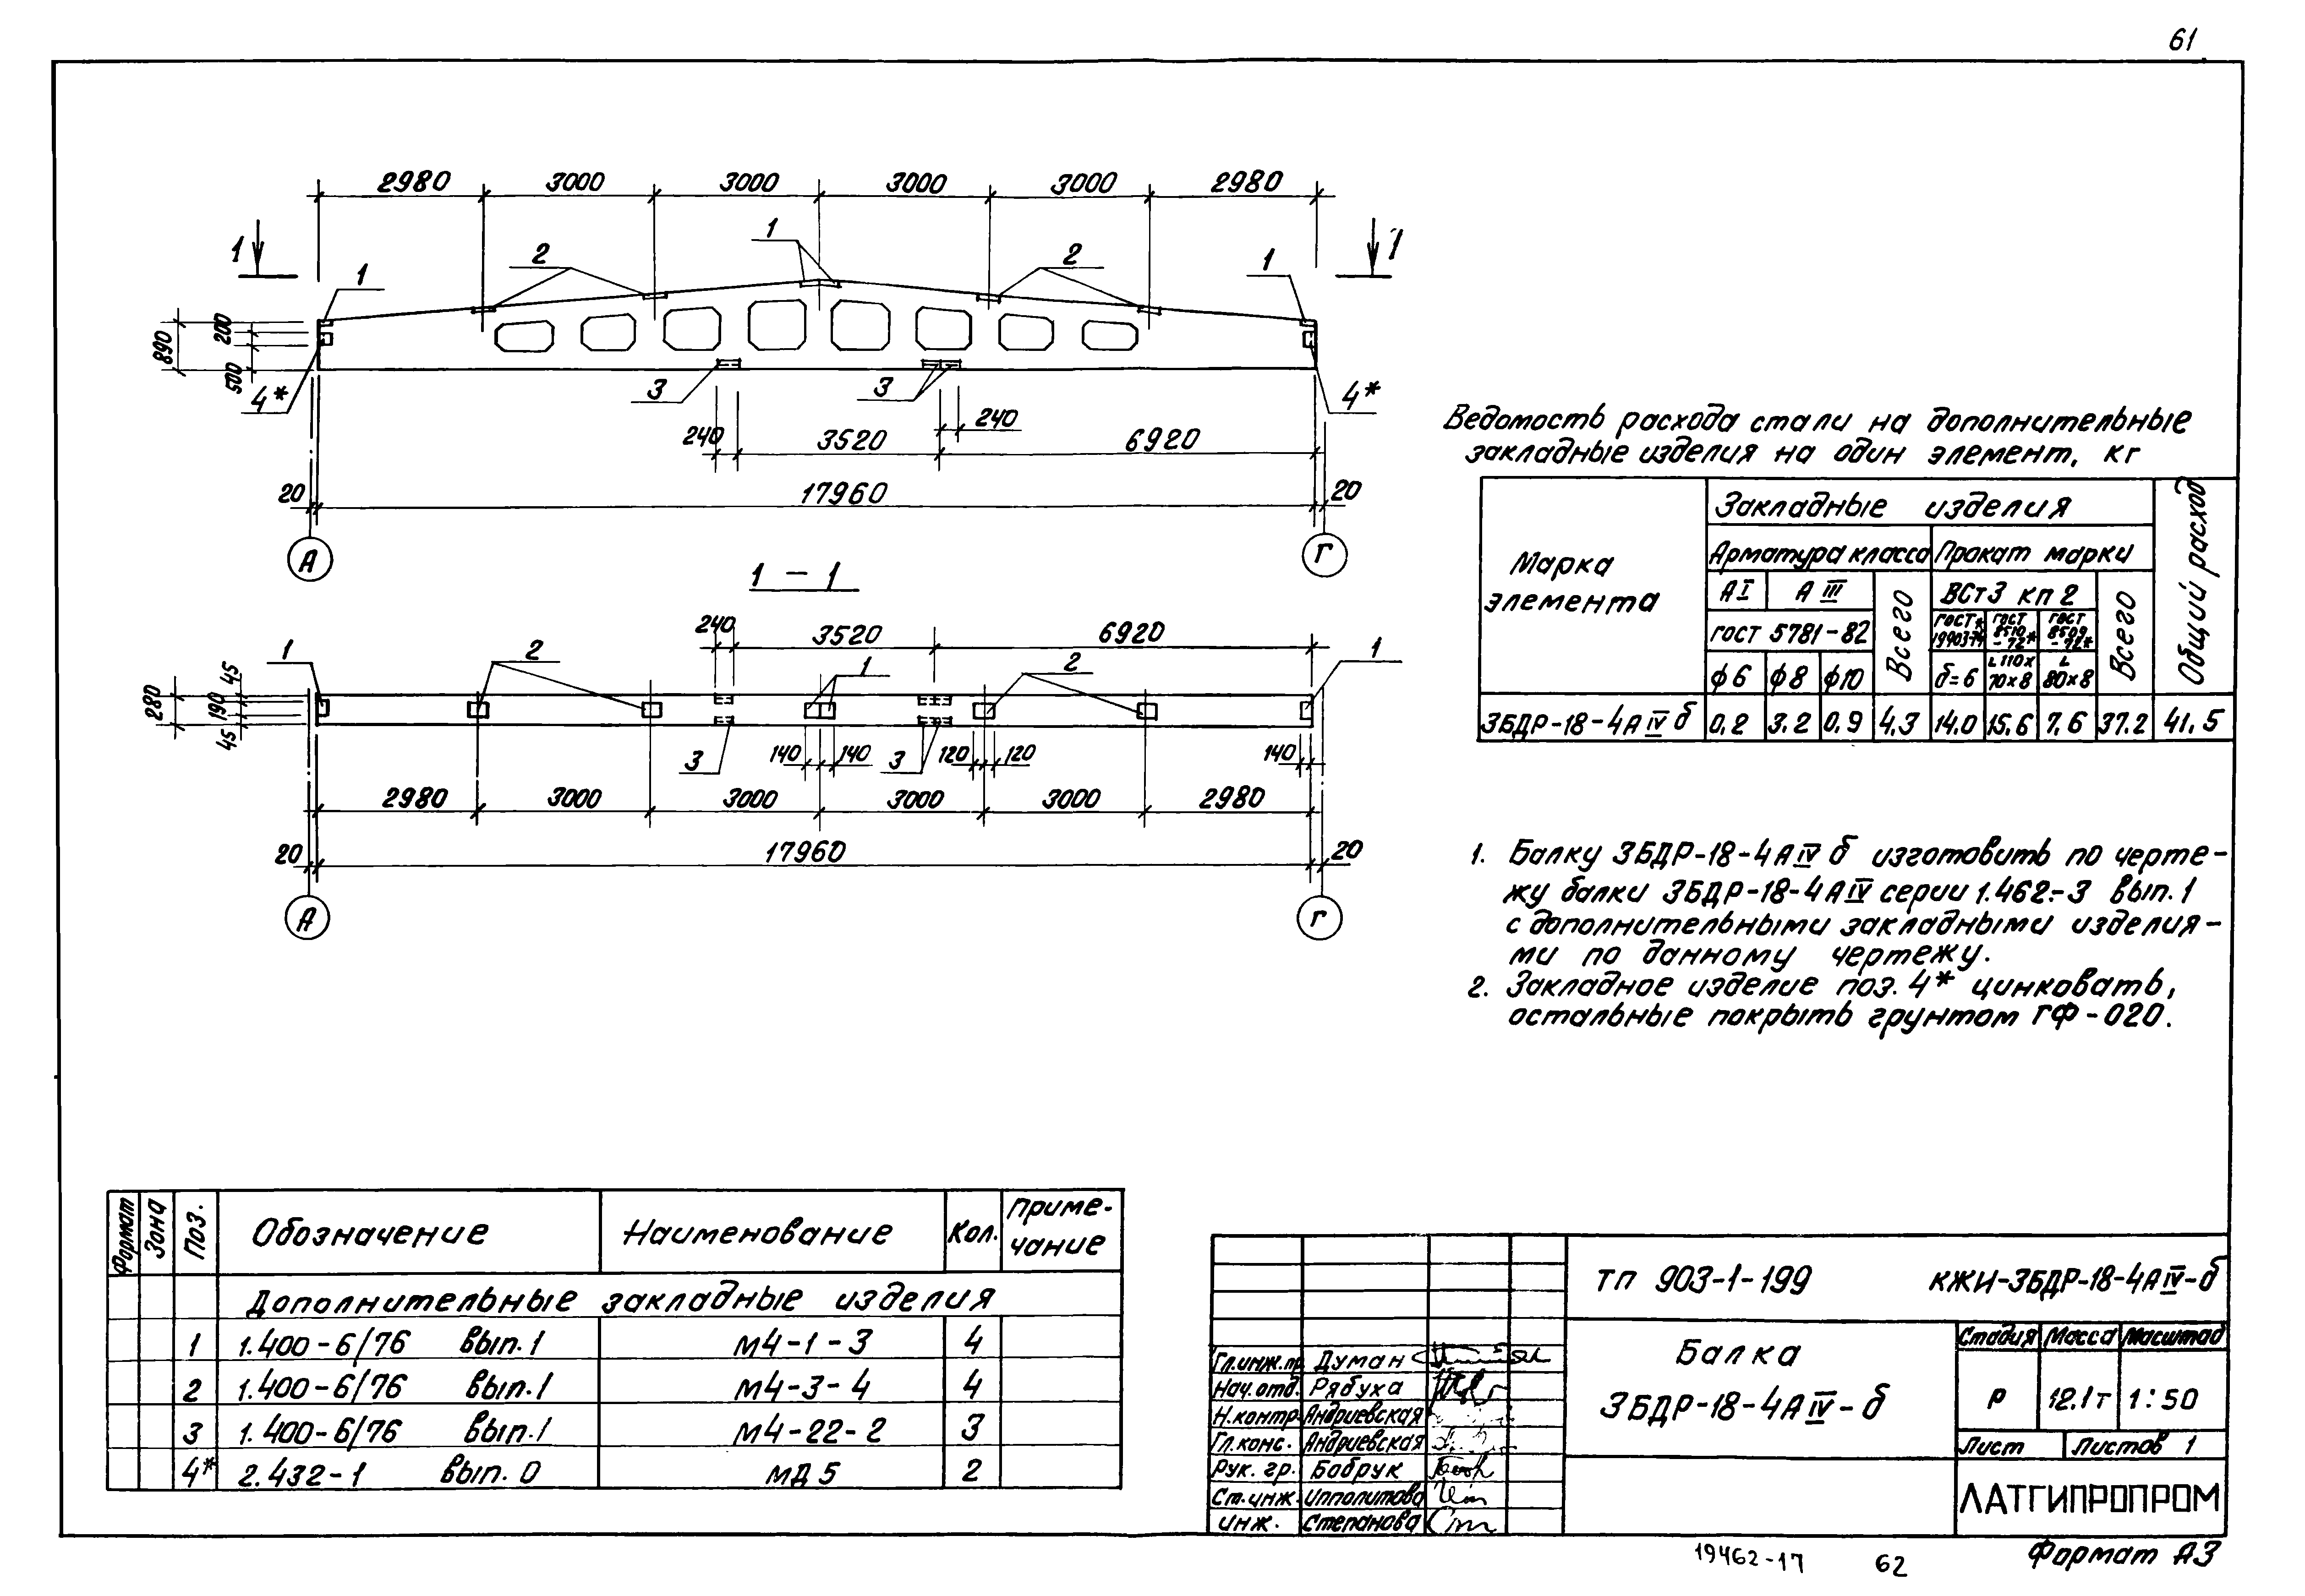 61
2980 3000 3000 3000 3000 2980
1 1
1 2 1 2 1
890 200 500
4* 3 3 4*
240 3520 240 6920
20 17960 20
А Г
1 – 1
240 3520 6920
1 2 1 2 1
280 45 190 45
3 140 140 3 120 120 140
2980 3000 3000 3000 3000 2980
20 17960 20
А Г
Ведомость расхода стали на дополнительные
закладные изделия на один элемент, кг
Марка элемента
Закладные изделия
Общий расход
Арматура класса Прокат марки
АI АIII Всего ВСт3 кп2 Всего
ГОСТ 5781-82 ГОСТ* 19903-74 ГОСТ 8510-72* ГОСТ 8509-72*
ф6 ф8 ф10 δ=6 L110х70×8 L80×8
3БДР-18-4АIVб 0,2 3,2 0,9 4,3 14,0 15,6 7,6 37.2 41,5
1. Балку 3БДР-18-4АIVб изготовить по черте-
жу балки 3БДР-18-4АIV серии 1.462-3 вып.1
с дополнительными закладными изделия-
ми по данному чертежу.
2. Закладное изделие поз. 4* цинковать,
остальные покрыть грунтом ГФ-020.
Формат Зона Поз. Обозначение Наименование Кол. Приме-
чание
Дополнительные закладные изделия
1 1.400-6/76 вып.1 М4-1-3 4
2 1.400-6/76 вып.1 М4-3-4 4
3 1.400-6/76 вып.1 М4-22-2 3
4* 2.432-1 вып.0 МД5 2
ТП 903-1-199 КЖИ-3БДР-18-4АIV-б
Балка
3БДР-18-4АIV-б
Стадия Масса Масштаб
Р 12.1т 1:50
Лист Листов 1
ЛАТГИПРОПРОМ
Гл.инж.пр Думан
Нач.отд. Рябуха
Н.контр. Андриевская
Гл.конс. Андриевская
Рук. гр. Бобрук
Ст.инж. Ипполитова
инж. Степанова
19462-17 62 Формат А3